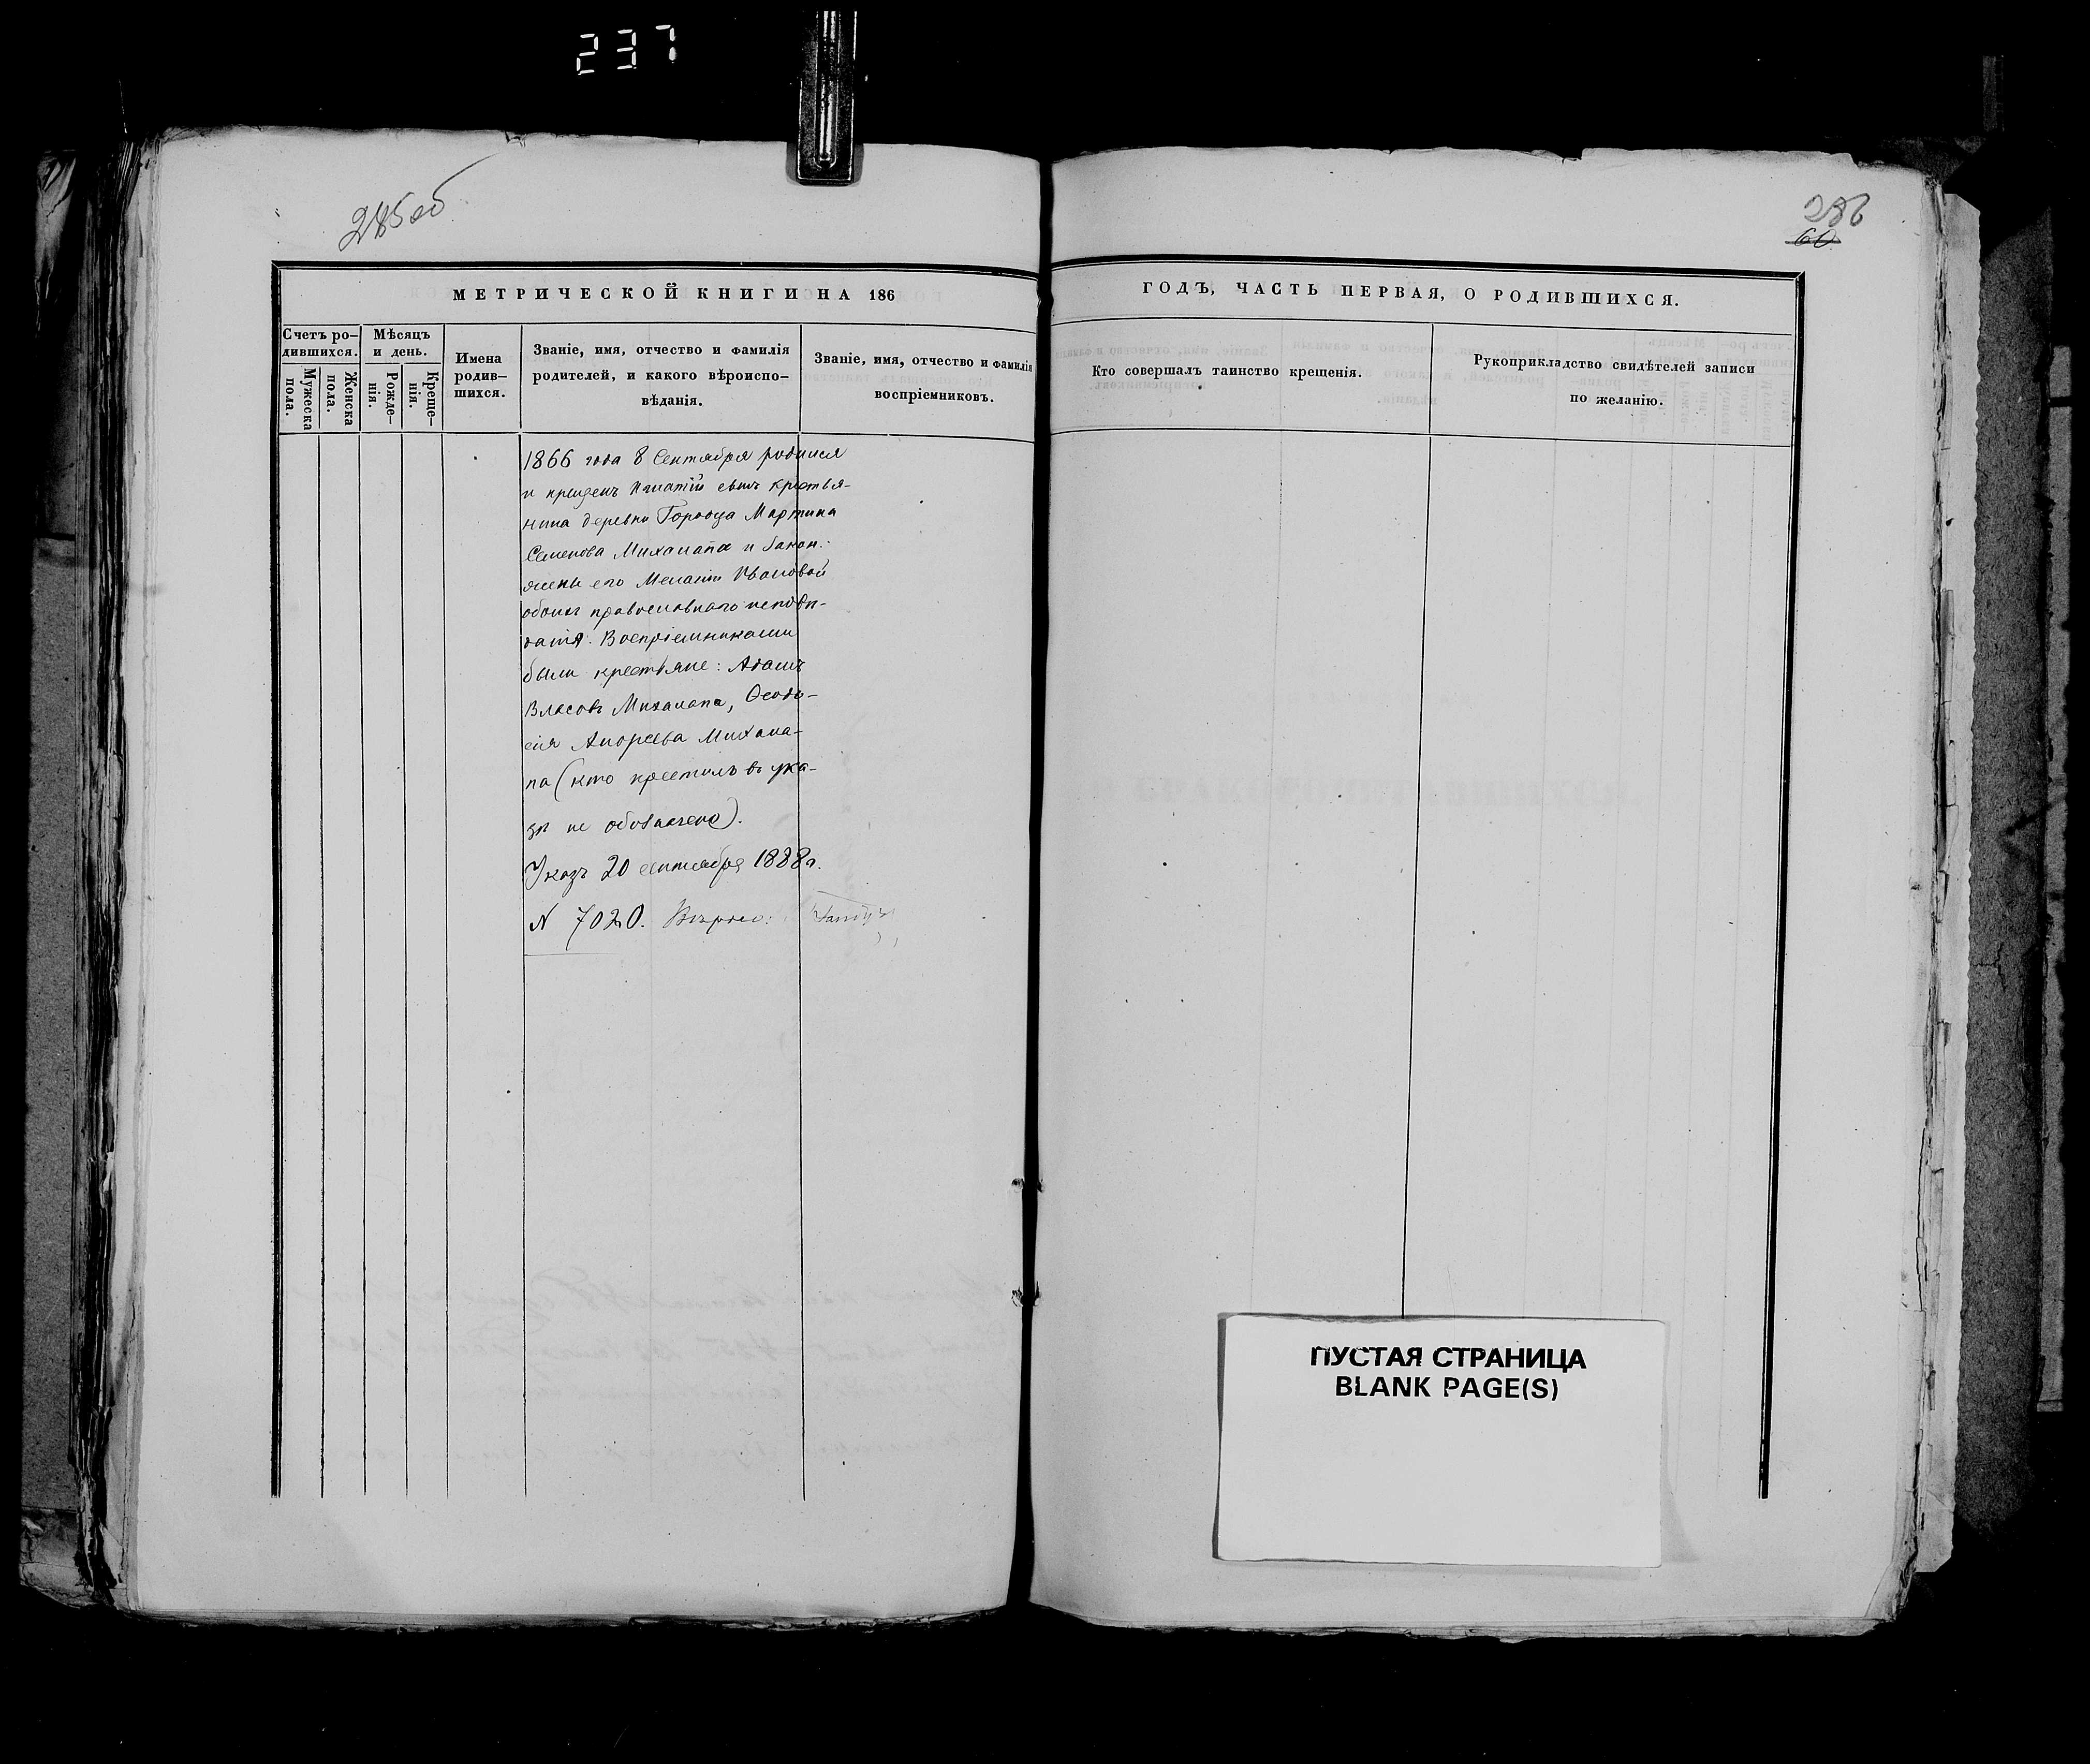 237
285об
286
60
МЕТРИЧЕСКОЙ КНИГИ НА 186
ГОДЪ, ЧАСТЬ ПЕРВАЯ, О РОДИВШИХСЯ.
Счетъ ро-
дившихся.
Мужеска
пола.
Женска
пола.
Мѣсяцъ
и день.
Рожде-
нія.
Креще-
нія.
Имена
родив-
шихся.
Званіе, имя, отчество и фамилія
родителей, и какого вѣроиспо-
вѣданія.
Званіе, имя, отчество и фамилія
воспріемниковъ.
Кто совершалъ таинство крещенія.
Рукоприкладство свидѣтелей записи
по желанію.
1866 года 8 Сентября родился
и крещенъ Игнатій сынъ крестья-
нина деревни Городца Мартина
Семенова Михалапа и закон.
жены его Меланіи Ивановой
обоихъ православнаго исповѣ-
данія. Воспріемниками
были крестьяне: Адамъ
Власовъ Михалапа, Ѳеодо-
сія Андреева Михала-
па (кто крестилъ въ ука-
зѣ не обозначено).
Указъ 20 сентября 1888 г.
N 7020. Вѣрно:
ПУСТАЯ СТРАНИЦА
BLANK PAGE(S)